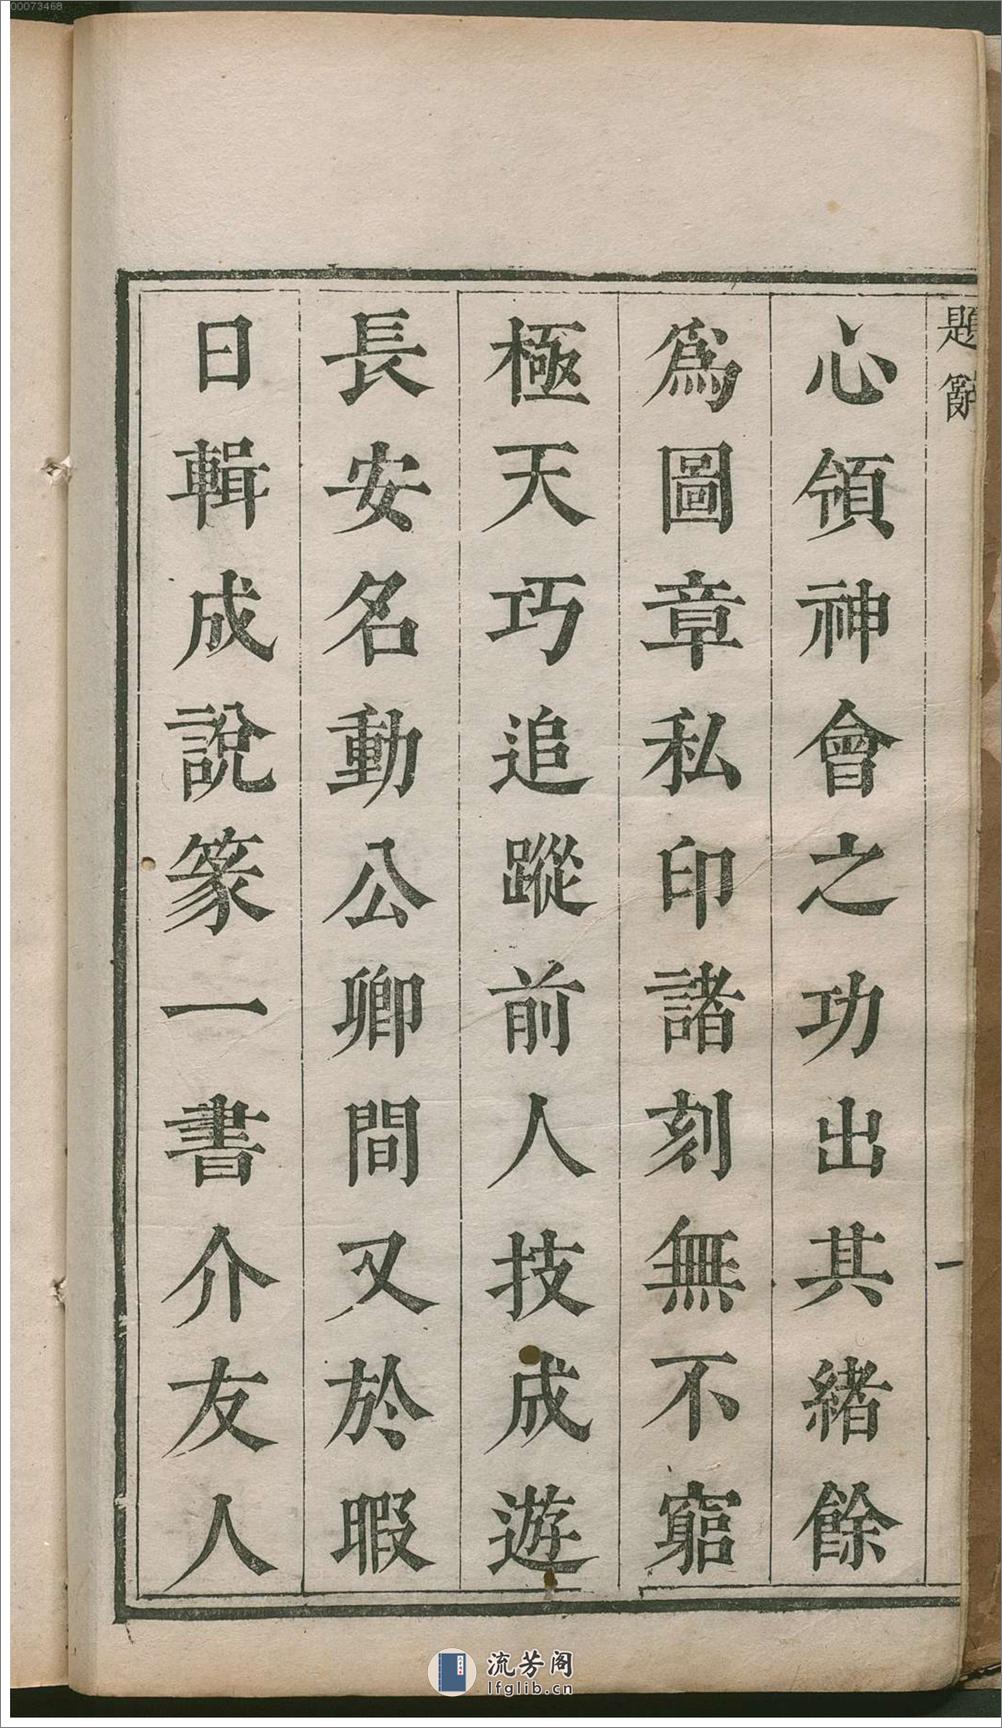 00073468
題辭
一
心領神會之功出其緒餘
爲圖章私印諸刻無不窮
極天巧追蹤前人技成遊
長安名動公卿間又於暇
日輯成說篆一書介友人
流芳阁
lfglib.cn